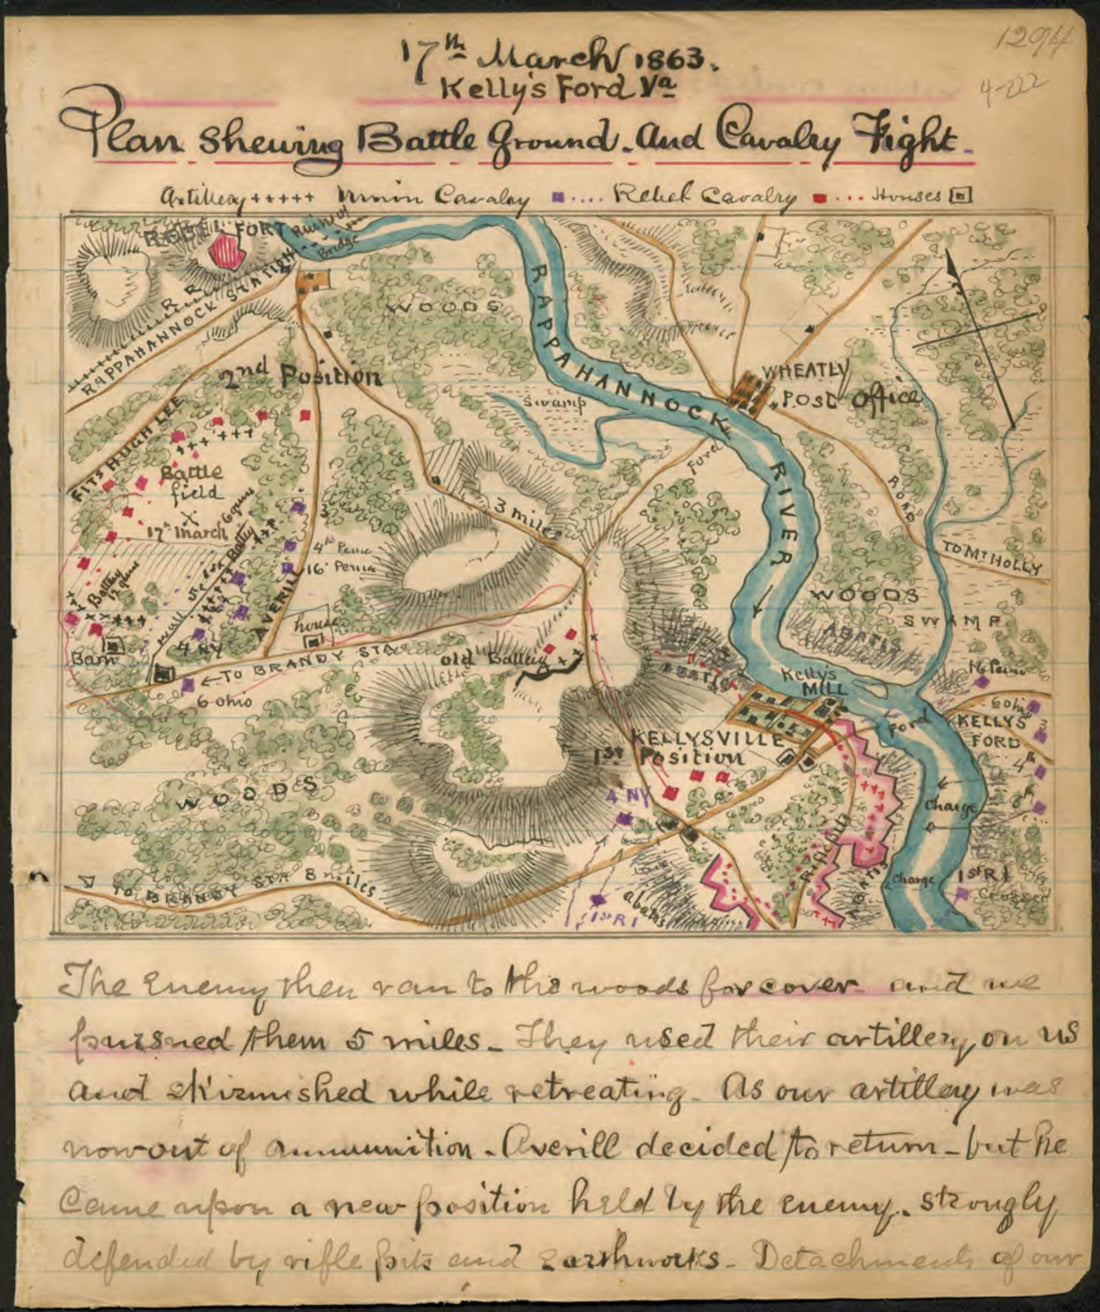 1294
4-222
17th March 1863.
Kelly's Ford Va
Plan Shewing Battle Ground. And Cavalry Fight.
Artillery +++++ Union Cavalry .... Rebel Cavalry ... Houses
REBEL FORT
Ruins of
Bridge
R R
RAPPAHANNOCK STATION
WOODS
RAPPAHANNOCK RIVER
2nd Position
Swamp
WHEATLY
POST Office
FITS HUGH LEE
Ford
ROAD
Battle
field
X
17th March
6 guns
Battery
3 miles
4th Penna
16th Penna
TO Mt HOLLY
Battery
12 guns
wall
AVERILL
house
WOODS
SWAMP
ABATIS
4 NY
Barn
← TO BRANDY STA
old Battery
ABATIS
Kelly's
MILL
16 Penna
6 ohio
6 ohio
Ford
KELLYS
FORD
3
KELLYSVILLE
1st
Position
4th
WOODS
4 NY
Charge
ROAD
TO BRANDY STA 8 miles
Charge
1st RI
Crossed
ABATIS
1st RI
abatis
The Enemy then ran to the woods for cover and we
pursued them 5 miles_ They used their artillery on us
and skirmished while retreating. As our artillery was
now out of ammunition. Averill decided to return_ but he
Came upon a new position held by the enemy. strongly
defended by rifle pits and Earthworks_ Detachments of our